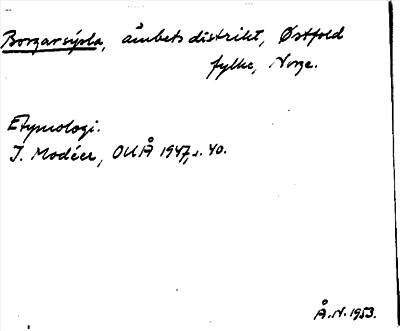 Borgarsýsla, ämbetsdistrikt, Østfold
fylke, Norge.
Etymologi.
I. Modéer, OUÅ 1947, s. 40.
Å. N. 1953.